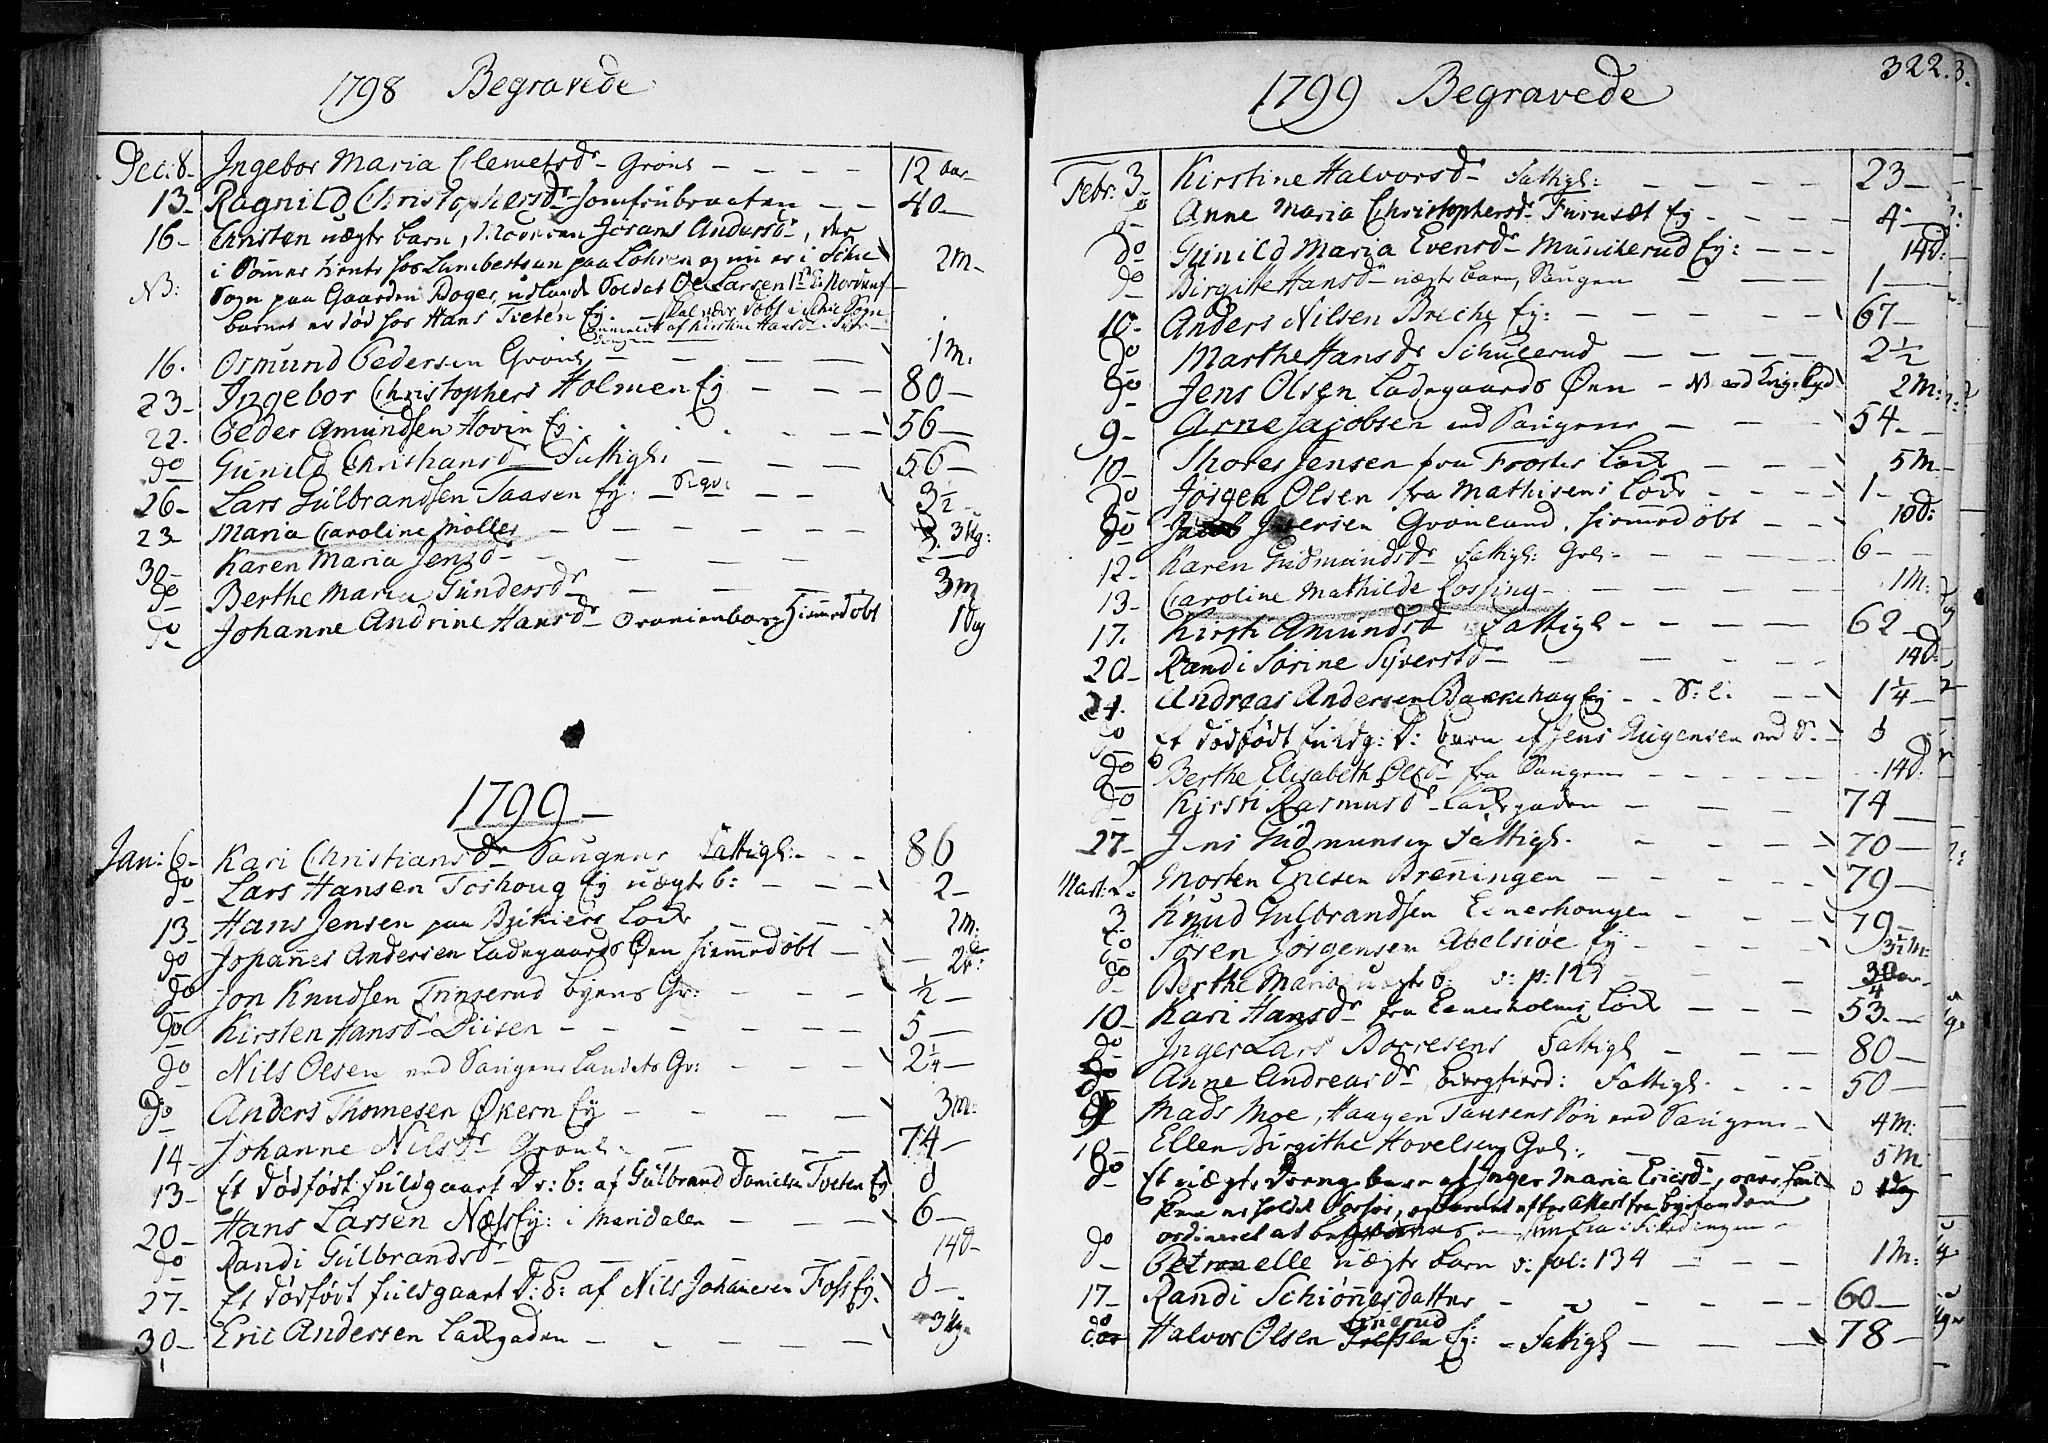 1798 Begravede
Dec: 8 - Ingebor Maria Clemetsdr - Grønl - 12 aar
13 - Ragnild Christophersdr - Jomfrubraaten - 40 -
16 - Christen uægte barn, Moderen Jorans Andersdr, der
i Sommer tiente hos Lambertsen paa Lohren og nu er i Schie 2 M -
NB: Sogn paa Gaarden Roger, udlagde Soldat Ole Larsen
barnet er død hos Hans Tveten Ey. - Skal være døbt i Schie Sogn
anmeldt af Kirstine Hansdr
16. Osmund Pedersen Grønl - 1 m:
23 - Ingebor Christophers Holmen Ey - 80 -
22. Peder Amundsen Hovin Ey. 56 -
do Gunild Christiansdr Fattigl: - 56 -
26 - Lars Gulbrandsen Taasen Ey: 3½ -
23 - Maria Caroline Møller - 3 Ug:
30 - Karen Maria Jensdr -
do Berthe Maria Gundersdr - 3 m
do Johanne Andrine Hansdr - Oranienborg hiemmedøbt 1 Dag
1799 -
Jan: 6 - Kari Christiansdr Saugene Fattigl: - 86
do Lars Hansen Toshoug Ey uægte b: - 2 -
13 - Hans Jensen paa Løcke 2 M:
do Johannes Andersen Ladegaards Øen hiemmedøbt - 2 d:
do Jon Knudsen Trinserud byens Gr: - ½ -
do Kirsten Hansdr Piisen - 5 -
do Nils Olsen ved Saugene Landets Gr: - 2¼ -
do Anders Thomesen Økern Ey - 3 m:
14 - Johanne Nilsdr Grønl. - 74 -
13 - Et dødfødt fuldgaaet Dr: b: af Gulbrand Danielsen Tveten Ey 0
20 - Hans Larsen Næss Ey: i Maridalen - 6 -
do Randi Gulbrandsdr - 14 d -
27 - Et dødfødt fuldgaaet D: b: af Nils Johannesen Foss Ey. 0 -
30 - Eric Andersen Ladegaden - 3 Ug -
322.
1799 Begravede
Febr: 3 - Kirstine Halvorsdr Fattigl: - 23 -
do Anne Maria Christophersdr Furuset Ey - 4 -
do Gunild Maria Evensdr Munkerud Ey: - 14 d:
do Birgitte Hansdr uægte barn, Saugen - 1 -
10 - Anders Nilsen Breche Ey: - 67 -
do Marthe Hansdr Schulerud - 2½
do Jens Olsen Ladegaards Øen - 2 M:
9 - Arne Jacobsen ved Saugene - 54 -
10 - Thores Jensen fra Frostes Løcke - 5 M -
do Jørgen Olsen fra Mathisens Løcke - 1 -
do Iversen Grønland, hiemmedøbt - 10 d:
12 - Karen Gudmundsdr Fattigl: Grl: - 6 -
13 - Caroline Mathilde Lossing - 1 M:
17. Kirsti Amundsdr Fattigl - 62 -
20 - Randi Sørine Syversdr - 14 d:
24. Andreas Andersen Bakkehag Ey - 1¼ -
do Et dødfødt fuldg: D: barn af Jens ved S. - 0
do Berthe Elisabeth Olsdr fra Saugene - 14 d.
do Kirsti Rasmusdr Ladegaden - 74 -
27 - Jens Gudmunsen Fattigl. - 70 -
Mart: 2. Morten Ericsen Brenningen - 79 -
3 Knud Gulbrandsen Enerhougen - 79 -
do Søren Jørgensen Abelsøe Ey - 3½ M:
do Berthe Maria uægte b: v: p: 127 - ¾ aar -
10 - Kari Hansdr fra Løcke - 53 -
do Inger Lars Borresens Fattigl - 80 -
do Anne Andreasdr, Fattigl. 50 -
do Mads Moe, Haagen Tausens Søn ved Saugene - 4 M:
10 - Ellen Birgithe Hovelsen Grl: - 5 M
do Et uægte Drenge barn af Inger Maria Ericsdr, over
er holdt Forhør, og barnet efter attest fra byefogden
ordineret at begraves
do Petronelle uægte barn v: fol: 134 - 1 M:
17 - Randi Schiønnesdatter - 60 -
do Halvor Olsen Ey: - Fattigl - 78 -